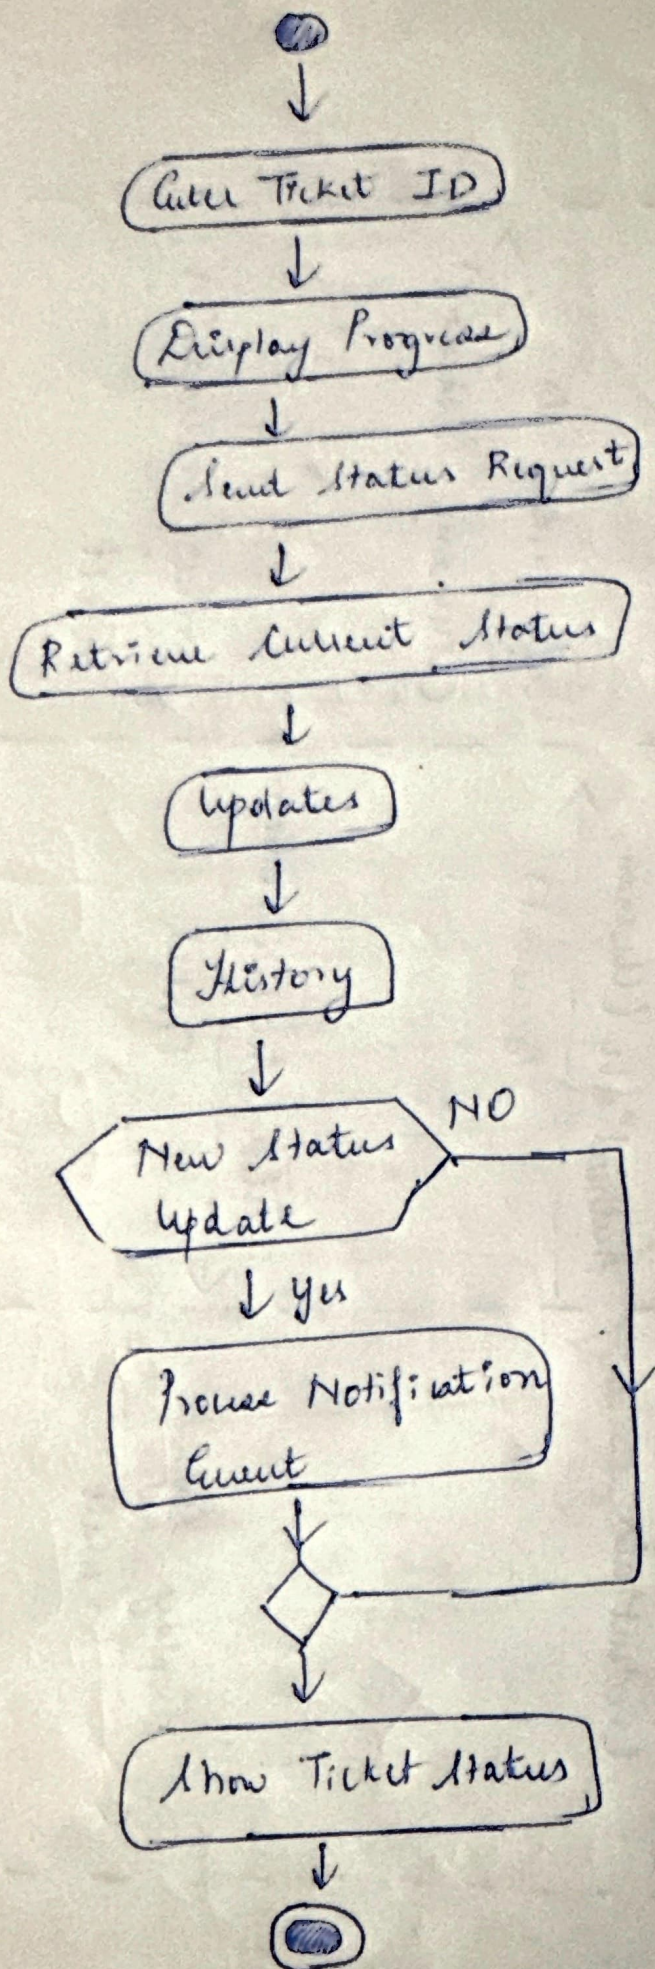 Enter Ticket ID
Display Progress
Send Status Request
Retrieve Current Status
Updates
History
NO
New Status
Update
Yes
Process Notification
Event
Show Ticket Status